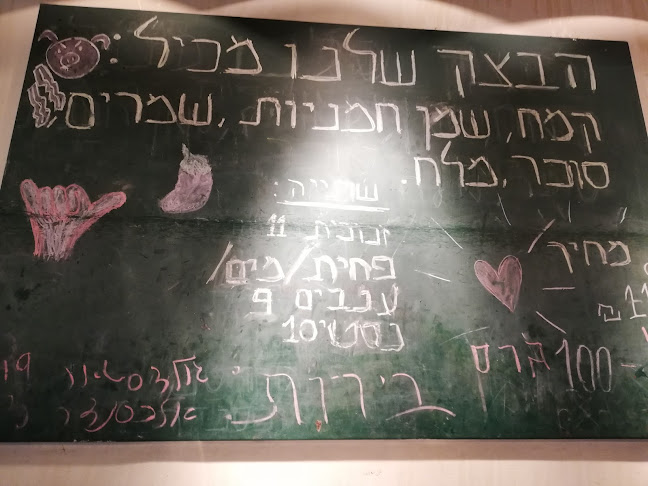 הבצק שלנו מכיל:
קמח, שמן חמניות, שמרים,
סוכר, מלח.
שתייה:
זכוכית 11
פחית/מים/
ענבים 9
נסטי 10
מחיר
100- גרם
בירות:
גולדסטאר
אלכסנדר
19